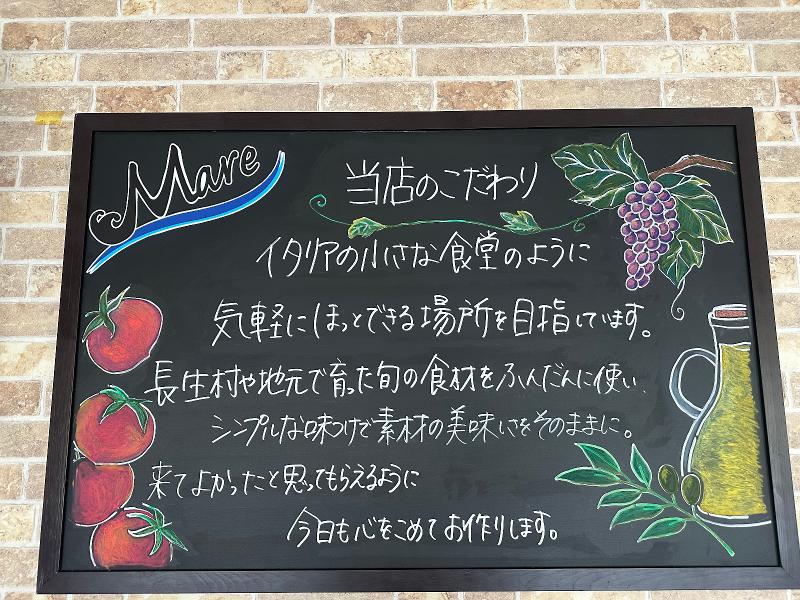 Mare
当店のこだわり
イタリアの小さな食堂のように
気軽にほっとできる場所を目指しています。
長生村や地元で育った旬の食材をふんだんに使い、
シンプルな味つけで素材の美味しさをそのままに。
来てよかったと思ってもらえるように
今日も心をこめてお作りします。